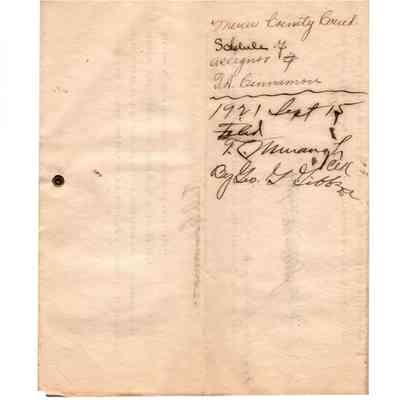 Mercer County Court
Schedule of
assignor of
Cinnamon
1921 Sept 15
Filed
T. J. Murangh
By Geo. T Gibbs